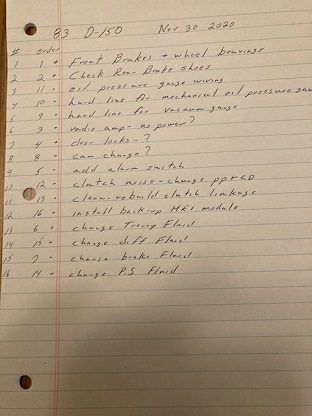 83 D-150 Nov 30 2020
# order
1 1 • Front Brakes + wheel bearings
2 2 • Check Rear Brake shoes
3 11 • oil pressure gauge wiring
4 10 • hard line for mechanical oil pressure gau
5 9 • hard line for vacuum gauge
6 3 • radio amp - no power?
7 4 • locks - ?
8 8 • cam change?
9 5 • add alarm switch
10 12 • clutch noise - change
11 13 • clean - rebuild clutch linkage
12 16 • install back-up HEI module
13 6 • change Fluid
14 15 • change diff Fluid
15 7 • change brake Fluid
16 14 • change P.S Fluid